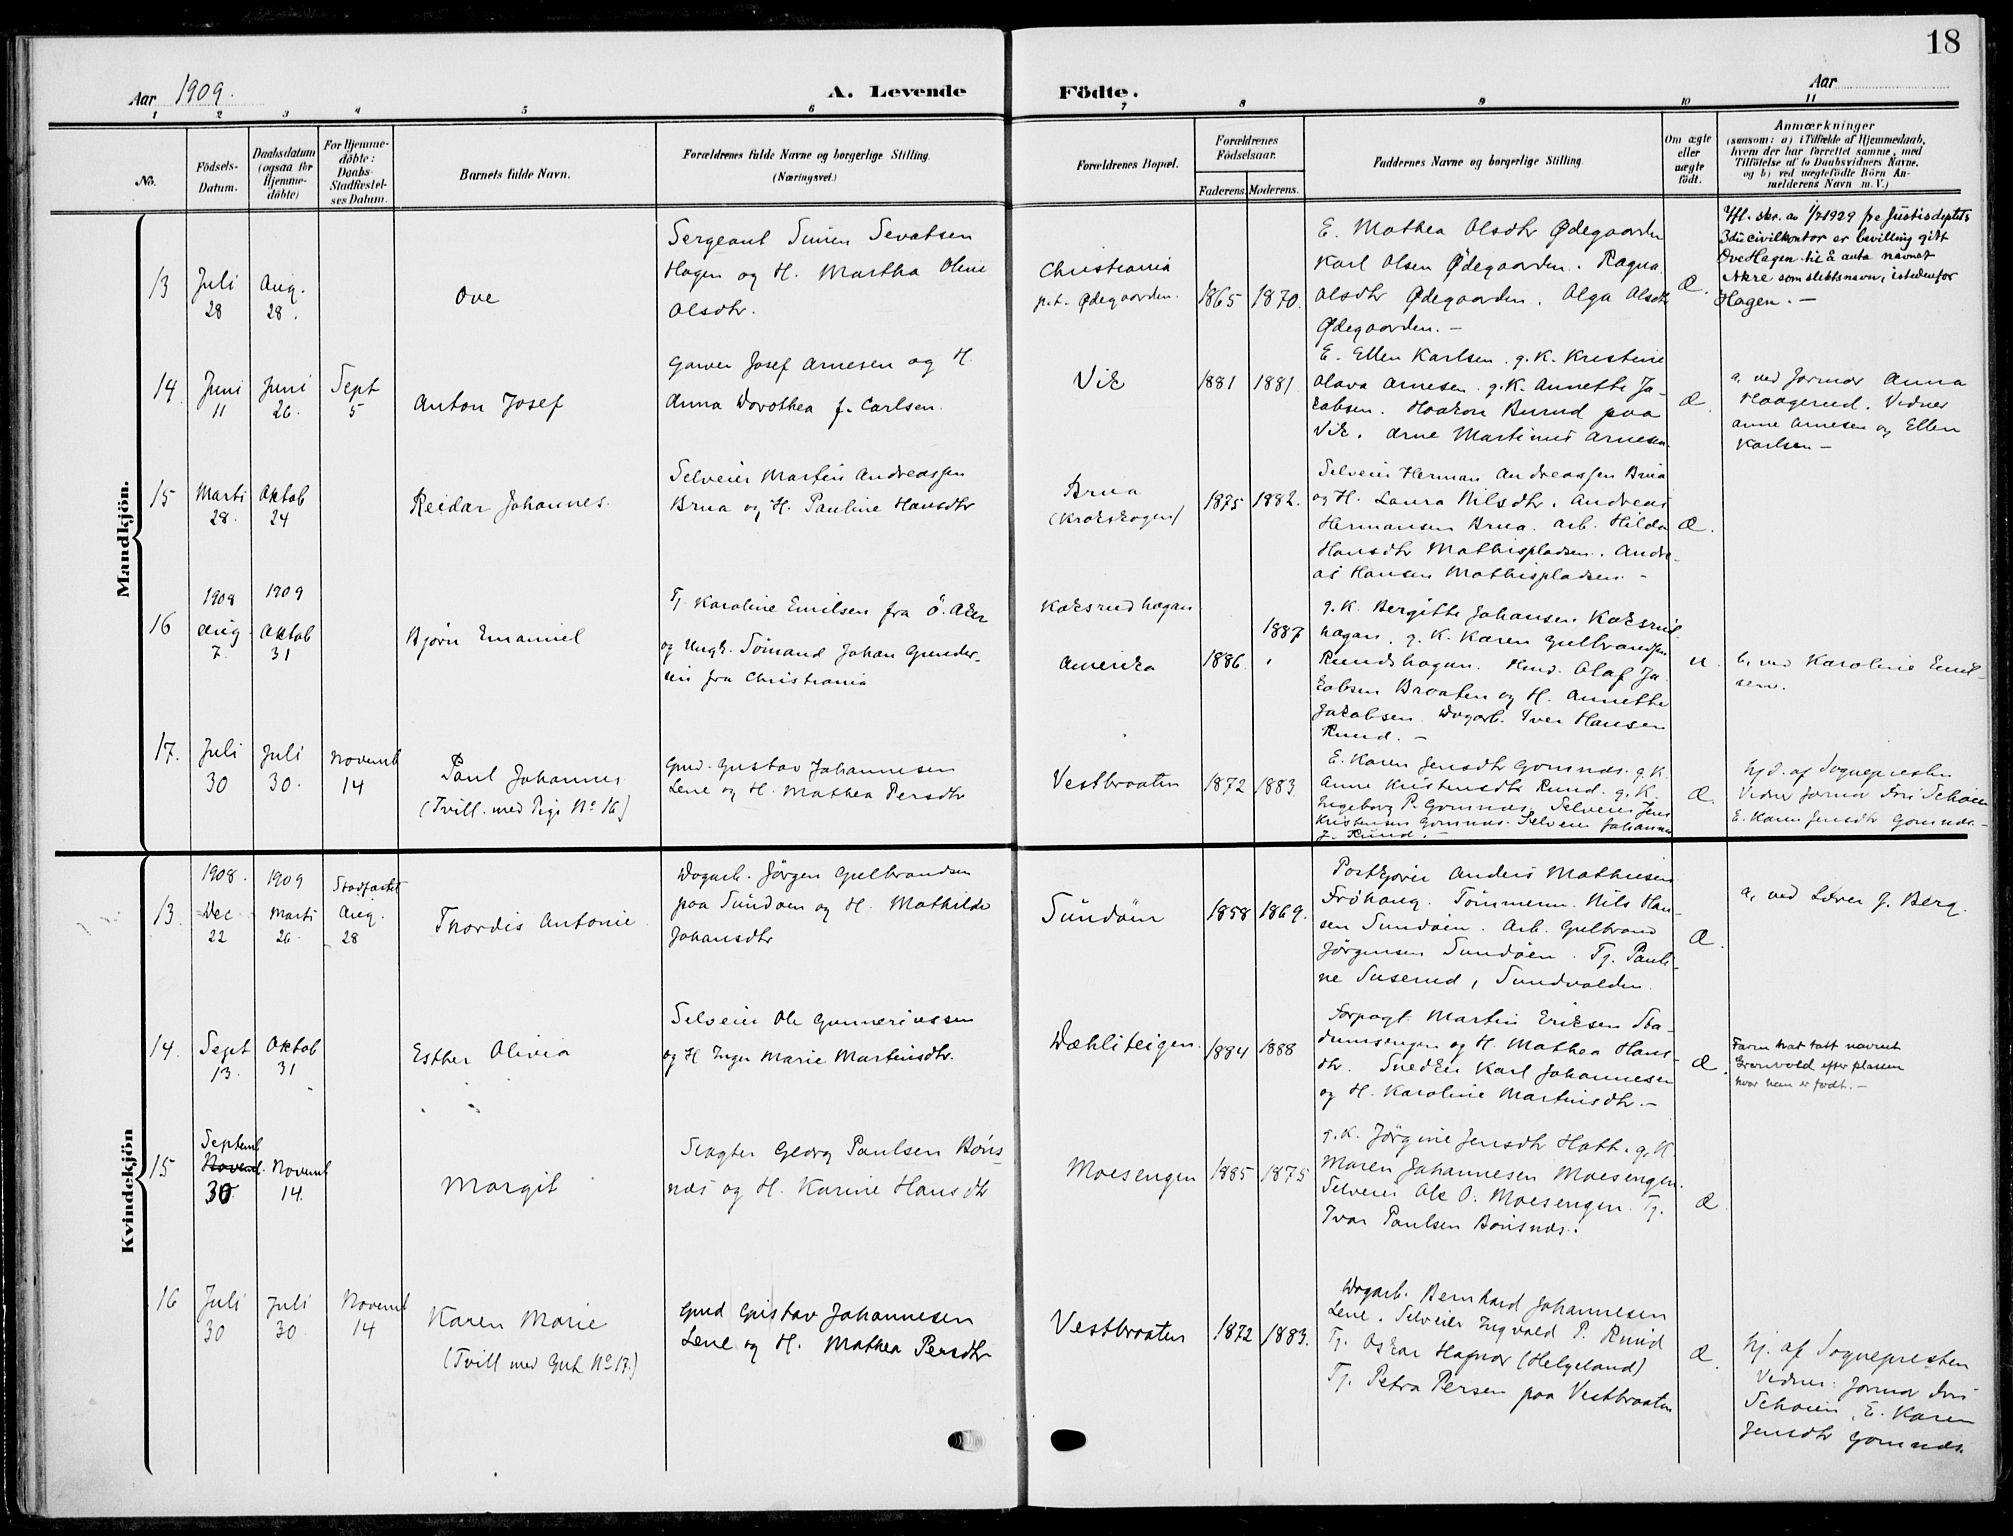 18
Aar 1909.
A. Levende Födte.
Aar
1 2 3 4 5 6 7 8 9 10 11
No.
Födsels-
Datum.
Daabsdatum
(ogsaa for
Hjemme-
döbte)
For Hjemme-
döbte:
Daabs-
Stadfæstel-
ses Datum.
Barnets fulde Navn.
Forældrenes fulde Navne og borgerlige Stilling.
(Næringsvei.)
Forældrenes Bopæl.
Forældrenes
Födselsaar.
Faderens. Moderens.
Faddernes Navne og borgerlige Stilling.
Om ægte
eller
uægte
födt.
Anmærkninger
(saasom: a) i Tilfælde af Hjemmedaab,
hvem der har forrettet samme, med
Tilföielse af to Daabsvidners Navne,
og b) ved uægtefödte Börn An-
melderens Navn m. V.)
Mandkjön.
13
Juli
28
Aug.
28.
Ove
Sergeant Simen Sevatsen
Hagen og H. Martha Oline
Olsdtr.
Christiania
p.t. Ødegaarden.
1865 1870.
E. Mathea Olsdtr Ødegaarden
Karl Olsen Ødegaarden. Ragna
Olsdtr Ødegaarden. Olga Olsdtr
Ødegaarden. -
Æ.
Ifl. skr. av 1/7 1929 fra Justisdeptets
3die civilkontor er bevilling gitt
Ove Hagen til å anta navnet
Akre som slektsnavn, istedenfor
Hagen. -
14.
Juni
11
Juni
26.
Sept
5
Anton Josef
Garver Josef Arnesen og H.
Anna Dorothea f. Carlsen.
Vik
1881 1881.
E. Ellen Karlsen. g.K. Kristine
Olava Arnesen. g.K. Annette Ja-
kobsen. Haakon Burud paa
Vik. Arne Martinus Arnesen
Æ.
a, ved Jormor Anna
Haagerud. Vidner
Anne Arnesen og Ellen
Karlsen -
15
Marti
28.
Oktob
24
Reidar Johannes.
Selveier Martin Andreassen
Brua og H. Pauline Hansdtr
Brua
(Krokskogen)
1875 1882.
Selveier Herman Andreassen Brua
og H. Laura Nilsdtr. Andreas
Hermansen Brua. Arb. Hilda
Hansdtr Mathispladsen. Andre-
as Hansen Mathispladsen. -
Æ.
16
1908
Aug
7.
1909
Oktob
31
Bjørn Emanuel
Tj. Karoline Emilsen fra Ö. Aker
og Ungk. Sømand Johan Gunder-
sen fra Christiania
Koksrudhagan
Amerika
1886. 1887
g.K. Bergitte Johansen Koksrud-
hagan. g.K. Karen Gulbrandsen
Rundshagan. Kmd. Olaf Ja-
kobsen Braaten og H. Annette
Jakobsen. Dagarb. Iver Hansen
Rund. -
u.
b, ved Karoline Emil-
sen.
17.
Juli
30
Juli
30.
Novemb
14
Paul Johannes
(Tvill. med Pige No 16)
Gmd. Gustav Johannesen
Lene og H. Mathea Persdtr
Vestbraaten
1872 1883.
E. Karen Jensdtr Gomnæs. g.K.
Anne Kristensdtr Rund. g.K.
Ingeborg P. Gomnæs. Selveier Jens
Kristensen Gomnæs. Selveier Johannes
J. Rund. -
Æ.
Hjd. af Sognepresten
Vidner Jormor Fri Schøien
E. Karen Jensdtr Gomnæs. -
Kvindekjön
13.
1908.
Dec
22
1909
Marti
26.
Stadfæstet
Aug.
28
Thordis Antonie.
Dagarb. Jörgen Gulbrandsen
paa Sundöen og H. Mathilde
Johansdtr
Sundöen
1858 1869.
Postkjører Anders Mathiesen
Fröhaug. Tömmerm. Nils Han-
sen Sundöen. Arb. Gulbrand
Jörgensen Sundöen. Tj. Pauli-
ne Suserud, Sundvolden.
Æ.
a, ved Lærer J. Berg.
14.
Sept
13.
Oktob
31
Esther Olivia
Selveier Ole Gunneriussen
og H Inger Marie Martinsdtr.
Dæhliteigen.
1884 1888
Forpagt. Martin Eriksen Sta-
dumsengen og H. Mathea Hans-
dtr. Snedker Karl Johannesen
og H. Karoline Martinsdtr. -
Æ.
Faren har tatt navnet
Grønvold efter plassen
hvor han er født. -
15
Septemb
Novemb.
30
Novemb
14.
Margit
Slagter Georg Paulsen Böns-
næs og H. Karine Hansdtr
Moesengen
1885 1875
g.K. Jörgine Jensdtr Hatt. g.K
Maren Johannesen Moesengen.
Selveier Ole O. Moesengen. Tj.
Ivar Paulsen Bönsnæs.
Æ.
16
Juli
30
Juli
30.
Novemb
14
Karen Marie
(Tvill med Gut No 17.)
Gmd Gustav Johannesen
Lene og H. Mathea Persdtr
Vestbraaten
1872 1883.
Dagarb. Bernhard Johannesen
Lene. Selveier Ingvald P. Rund
Tj. Oskar Hafnor (Helgeland)
Tj. Petra Persen paa Vestbraaten
Æ.
Hj. af Sognepresten
Vidner: Jormor Fri
Schøien, E. Karen
Jensdtr Gomnæs.